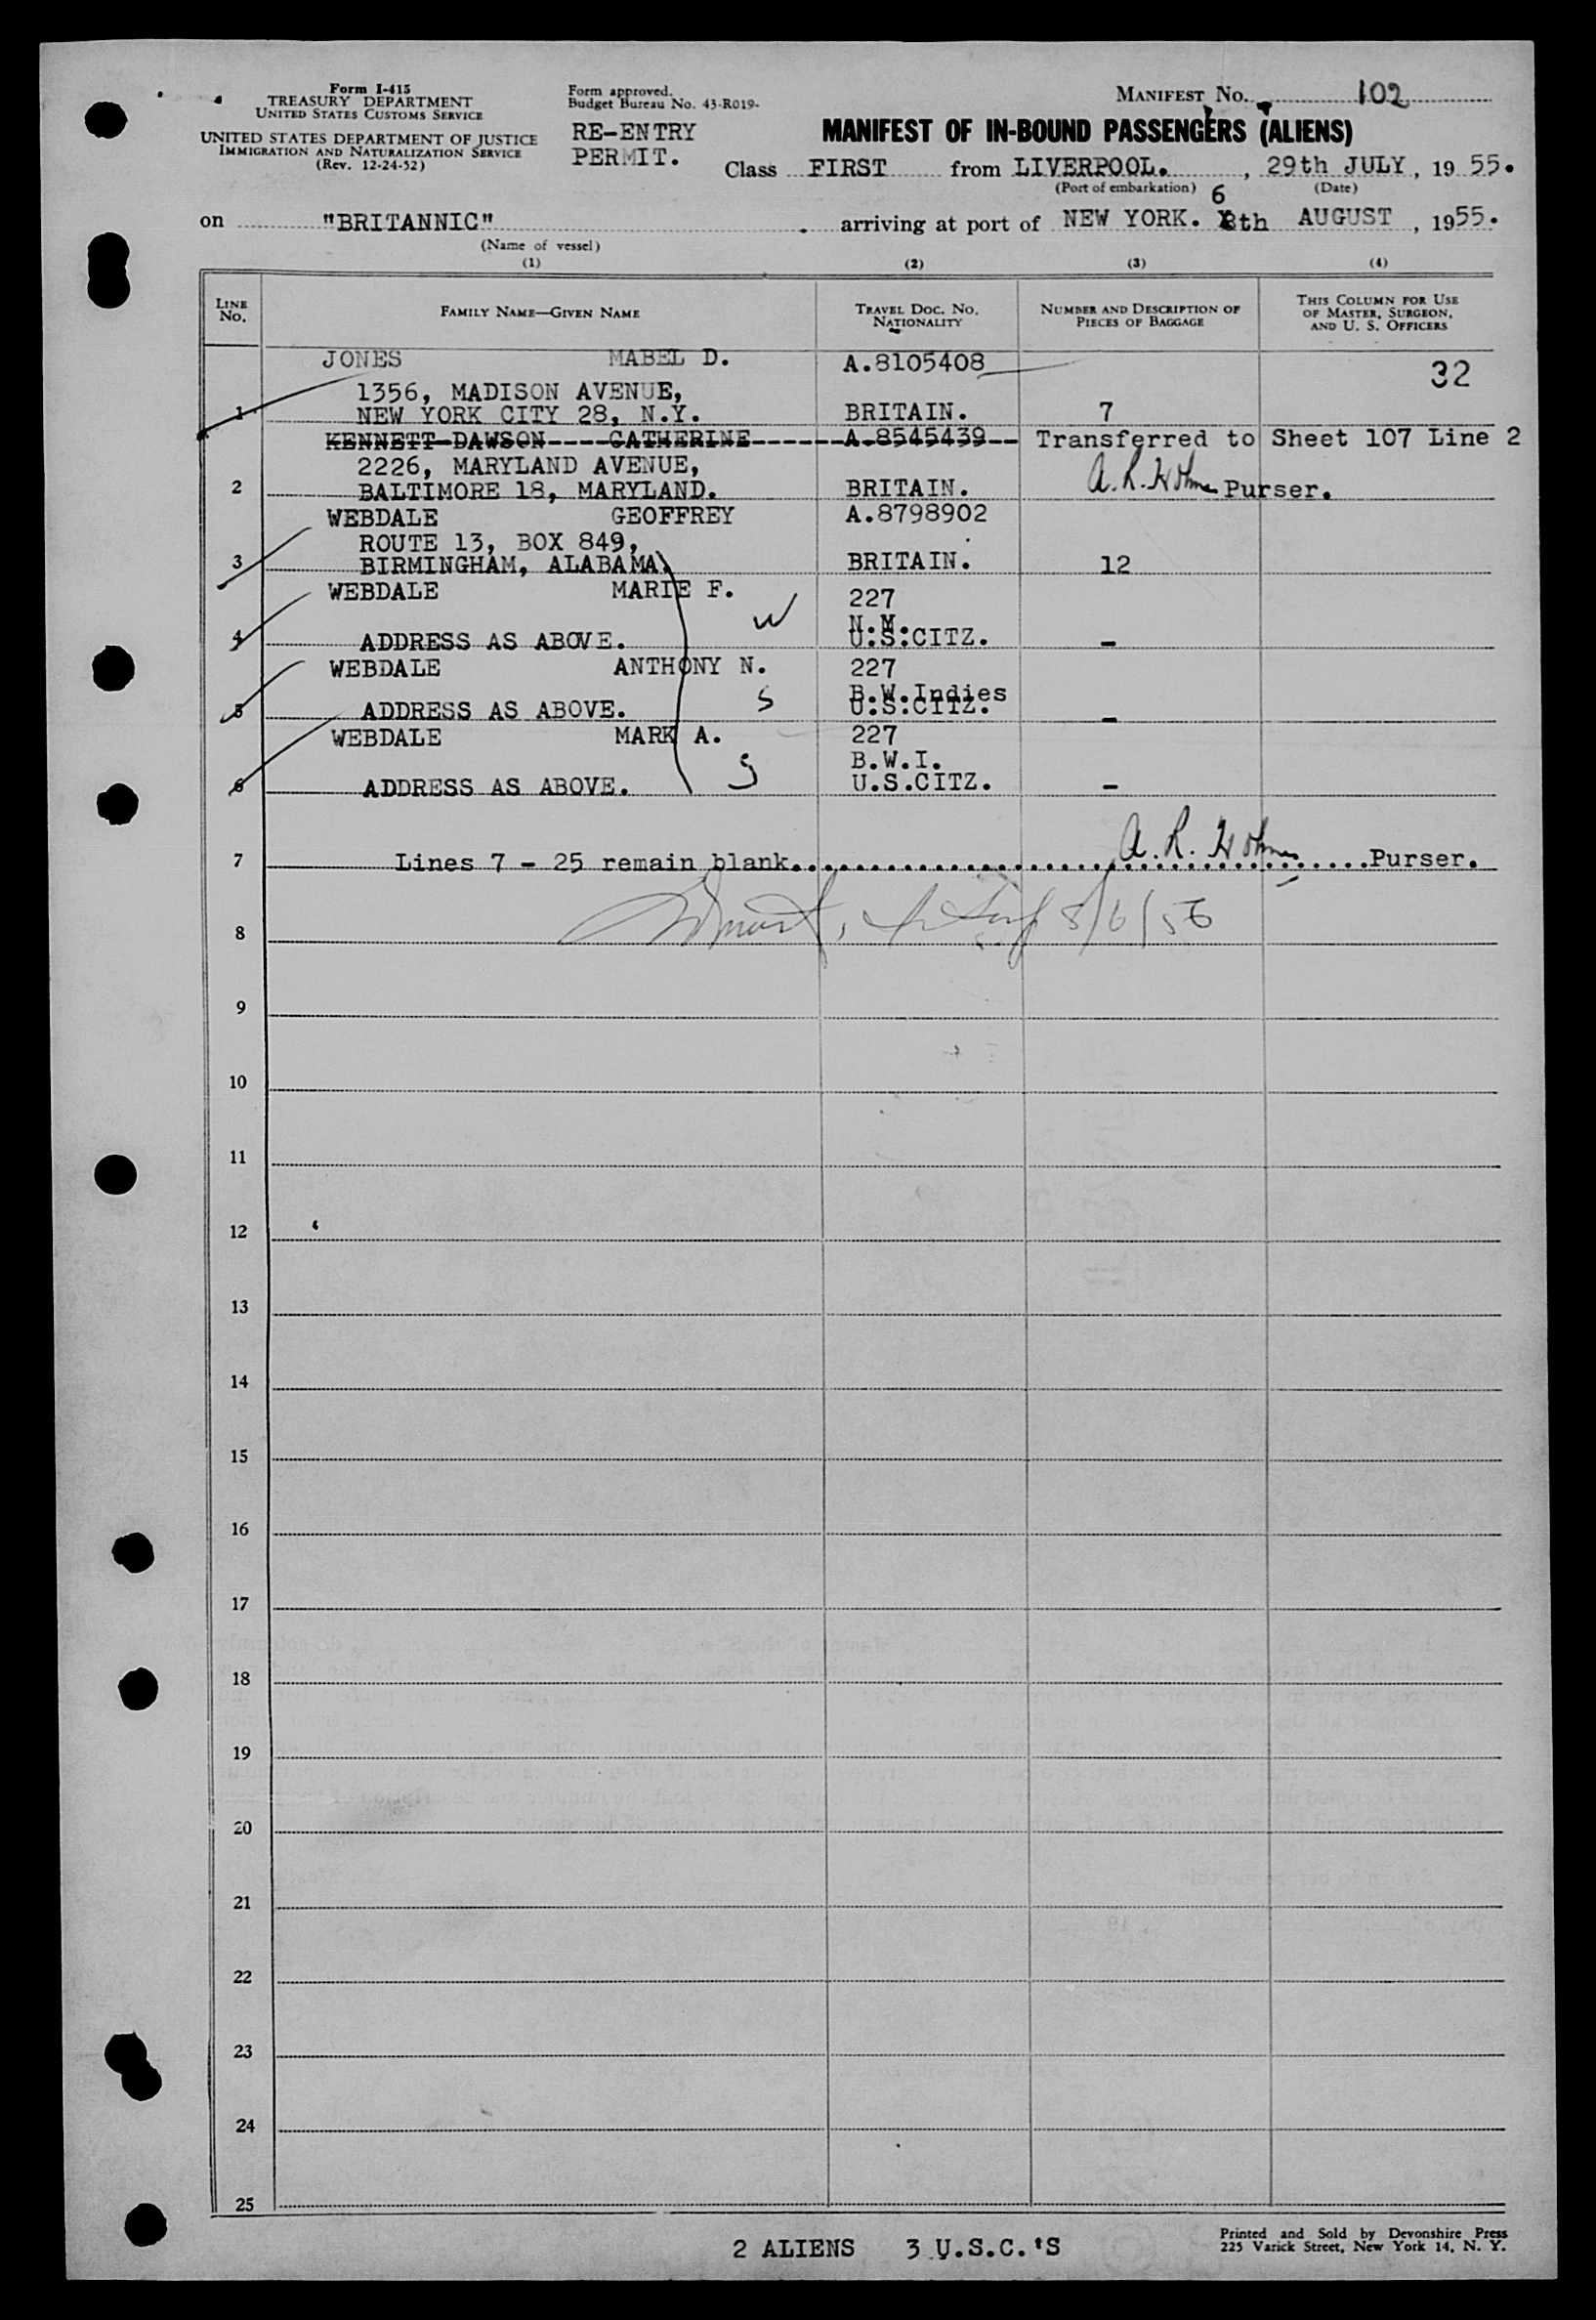 Form I-415
TREASURY DEPARTMENT
UNITED STATES CUSTOMS SERVICE
UNITED STATES DEPARTMENT OF JUSTICE
IMMIGRATION AND NATURALIZATION SERVICE
(Rev. 12-24-52)
Form approved.
Budget Bureau No. 43-R019-
RE-ENTRY
PERMIT.
MANIFEST No. 102
MANIFEST OF IN-BOUND PASSENGERS (ALIENS)
Class FIRST from LIVERPOOL. , 29th JULY , 19 55.
(Port of embarkation) (Date)
6
on "BRITANNIC" . arriving at port of NEW YORK. 8th AUGUST , 1955.
(Name of vessel)
(1) (2) (3) (4)
LINE No. FAMILY NAME—GIVEN NAME TRAVEL DOC. NO. NATIONALITY NUMBER AND DESCRIPTION OF PIECES OF BAGGAGE THIS COLUMN FOR USE OF MASTER, SURGEON, AND U. S. OFFICERS
JONES MABEL D. A.8105408 32
1356, MADISON AVENUE,
1 NEW YORK CITY 28, N.Y. BRITAIN. 7
KENNETT-DAWSON----CATHERINE------A.8545439-- Transferred to Sheet 107 Line 2
2226, MARYLAND AVENUE,
2 BALTIMORE 18, MARYLAND. BRITAIN. A. R. Purser.
WEBDALE GEOFFREY A.8798902
ROUTE 13, BOX 849,
3 BIRMINGHAM, ALABAMA. BRITAIN. 12
WEBDALE MARIE F. 227
W N.M.
4 ADDRESS AS ABOVE. U.S.CITZ. –
WEBDALE ANTHONY N. 227
S B.W.Indies
5 ADDRESS AS ABOVE. U.S.CITZ. –
WEBDALE MARK A. 227
S B.W.I.
6 ADDRESS AS ABOVE. U.S.CITZ. –
7 Lines 7 - 25 remain blank. A. R. Purser.
8
9
10
11
12
13
14
15
16
17
18
19
20
21
22
23
24
25
2 ALIENS 3 U.S.C.'S
Printed and Sold by Devonshire Press
225 Varick Street, New York 14, N. Y.